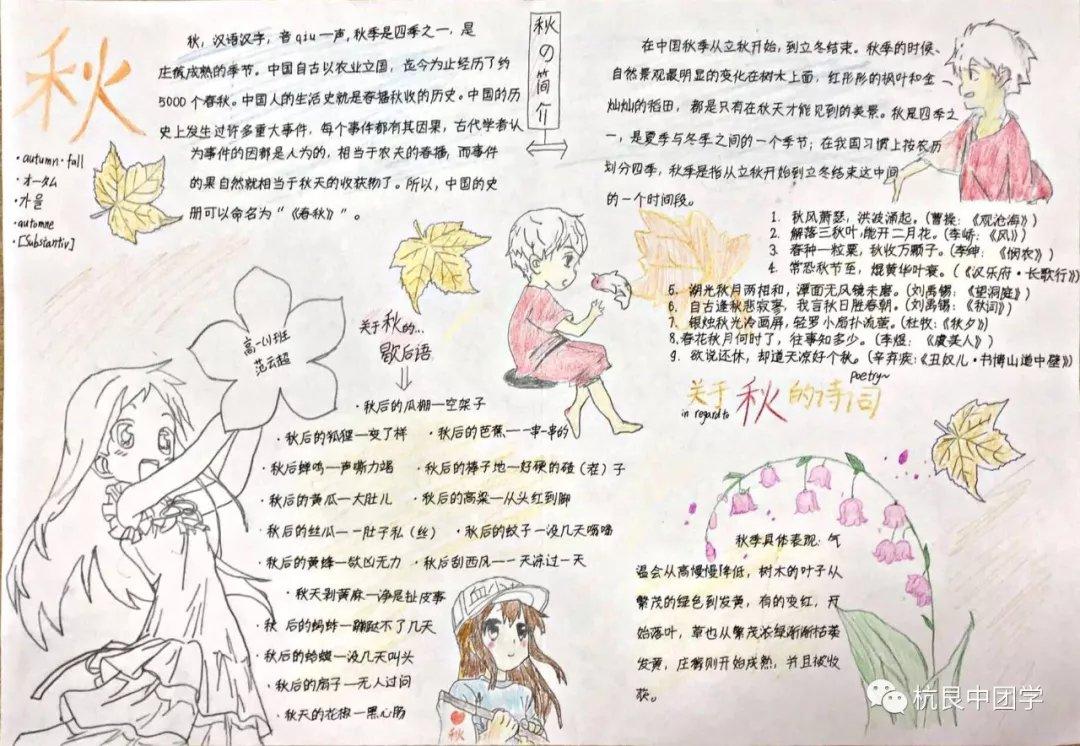 秋
秋，汉语汉字，音qiu一声，秋季是四季之一，是
庄稼成熟的季节。中国自古以农业立国，迄今为止经历了约
5000个春秋。中国人的生活史就是春播秋收的历史。中国的历
史上发生过许多重大事件，每个事件都有其因果，古代学者认
为事件的因都是人为的，相当于农夫的春播，而事件
的果自然就相当于秋天的收获物了。所以，中国的史
册可以命名为“《春秋》”。
·autumn·fall
·オータム
·가을
·automne
·[Substantiv]
秋の简介
在中国秋季从立秋开始，到立冬结束。秋季的时候、
自然景观最明显的变化在树木上面，红彤彤的枫叶和金
灿灿的稻田，都是只有在秋天才能见到的美景。秋是四季之
一，是夏季与冬季之间的一个季节；在我国习惯上按农历
划分四季，秋季是指从立秋开始到立冬结束这中间
的一个时间段。
1. 秋风萧瑟，洪波涌起。(曹操：《观沧海》)
2. 解落三秋叶，能开二月花。(李峤：《风》)
3. 春种一粒粟，秋收万颗子。(李绅：《悯农》)
4. 常恐秋节至，焜黄华叶衰。(《汉乐府·长歌行》)
5. 湖光秋月两相和，潭面无风镜未磨。(刘禹锡：《望洞庭》)
6. 自古逢秋悲寂寥，我言秋日胜春朝。(刘禹锡：《秋词》)
7. 银烛秋光冷画屏，轻罗小扇扑流萤。(杜牧：《秋夕》)
8.春花秋月何时了，往事知多少。(李煜：《虞美人》)
9. 欲说还休，却道天凉好个秋。(辛弃疾：《丑奴儿·书博山道中壁》)
poetry~
关于秋的诗词
in regard to
高一(1)班
范云超
关于秋的...
歇后语
·秋后的瓜棚—空架子
·秋后的狐狸—变了样 ·秋后的芭蕉—一串一串的
·秋后蝉鸣—声嘶力竭 ·秋后的棒子地—好硬的碴(茬)子
·秋后的黄瓜—大肚儿 ·秋后的高粱—从头红到脚
·秋后的丝瓜—一肚子私(丝) ·秋后的蚊子—没几天嗡嗡
·秋后的黄蜂—欲凶无力 ·秋后刮西风—一天凉过一天
·秋天剥黄麻—净是扯皮事
·秋 后的蚂蚱—蹦跶不了几天
·秋后的蛤蟆—没几天叫头
·秋后的扇子—无人过问
·秋天的花椒—黑心肠
秋
秋季具体表现：气
温会从高慢慢降低，树木的叶子从
繁茂的绿色到发黄，有的变红，开
始落叶，草也从繁茂浓绿渐渐枯萎
发黄，庄稼则开始成熟，并且被收
获。
杭艮中团学